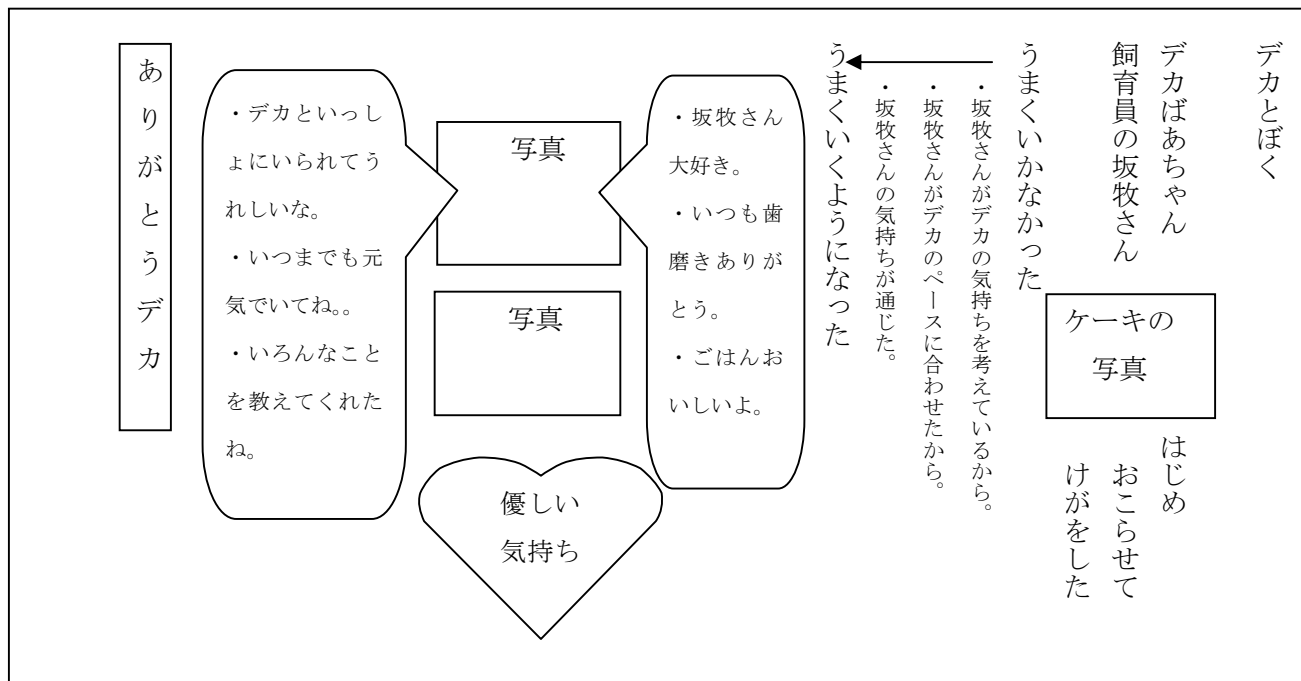 デカとぼく
デカばあちゃん
飼育員の坂牧さん
ケーキの
写真
はじめ
おこらせて
けがをした
うまくいかなかった
・坂牧さんがデカの気持ちを考えているから。
・坂牧さんがデカのペースに合わせたから。
・坂牧さんの気持ちが通じた。
うまくいくようになった
・坂牧さん
大好き。
・いつも歯
磨きありが
とう。
・ごはんお
いしいよ。
写真
写真
優しい
気持ち
・デカといっし
ょにいられてう
れしいな。
・いつまでも元
気でいてね。。
・いろんなこと
を教えてくれた
ね。
ありがとうデカ